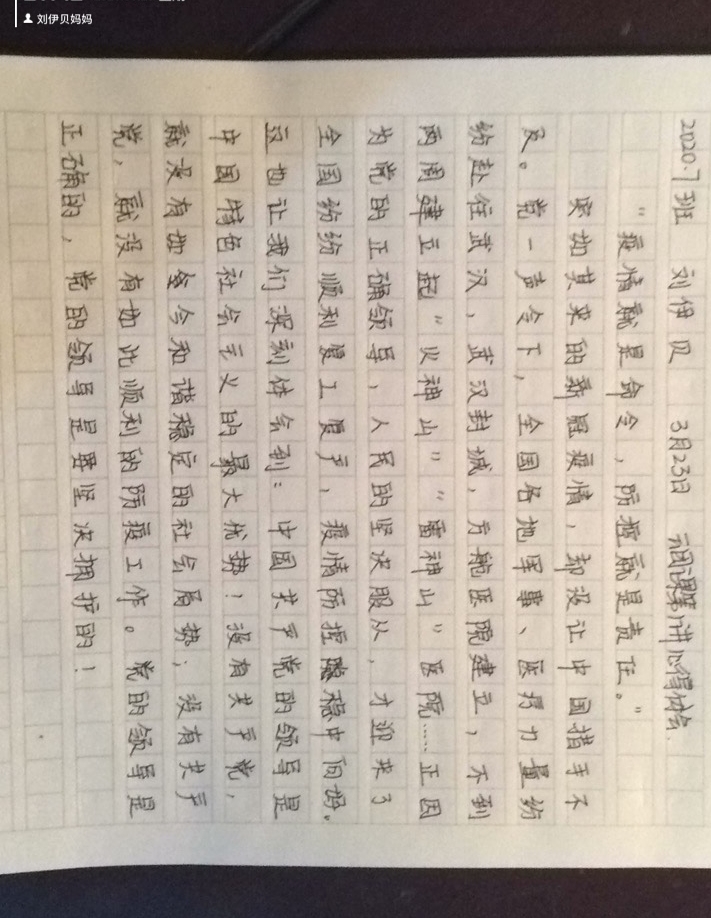 刘伊贝妈妈
2020.7班 刘伊贝 3月23日 团课第1讲心得体会.
“疫情就是命令,防控就是责任。”
突如其来的新冠疫情,却没让中国措手不
及。党一声令下,全国各地军事、医疗力量纷
纷赴往武汉,武汉封城,方舱医院建立,不到
两周建立起“火神山”“雷神山”医院……正因
为党的正确领导、人民的坚决服从,才迎来了
全国纷纷顺利复工复产,疫情防控稳中向好。
这也让我们深刻体会到:中国共产党的领导是
中国特色社会主义的最大优势!没有共产党,
就没有如今和谐稳定的社会局势;没有共产
党,就没有如此顺利的防疫工作。党的领导是
正确的,党的领导是要坚决拥护的!